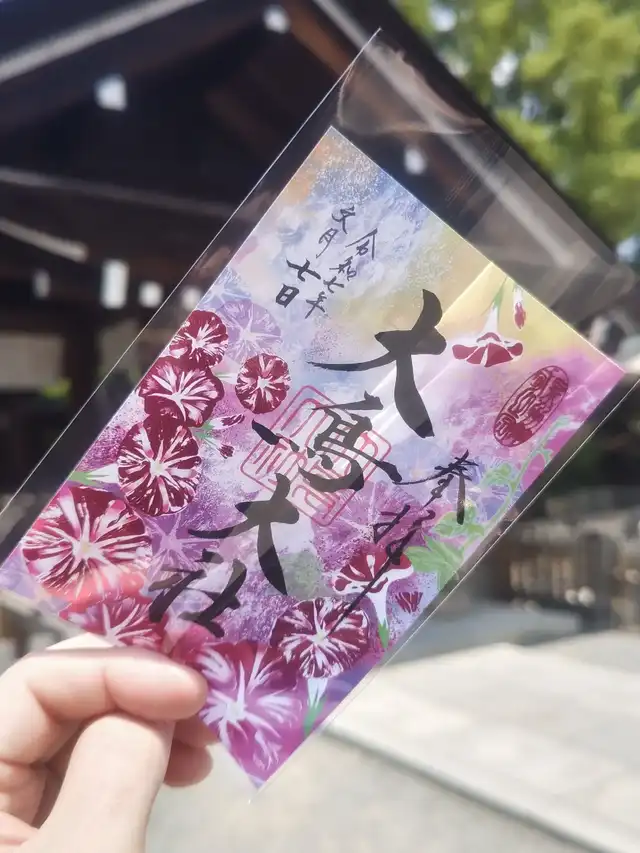 奉拝
大鳥大社
令和七年
文月七日